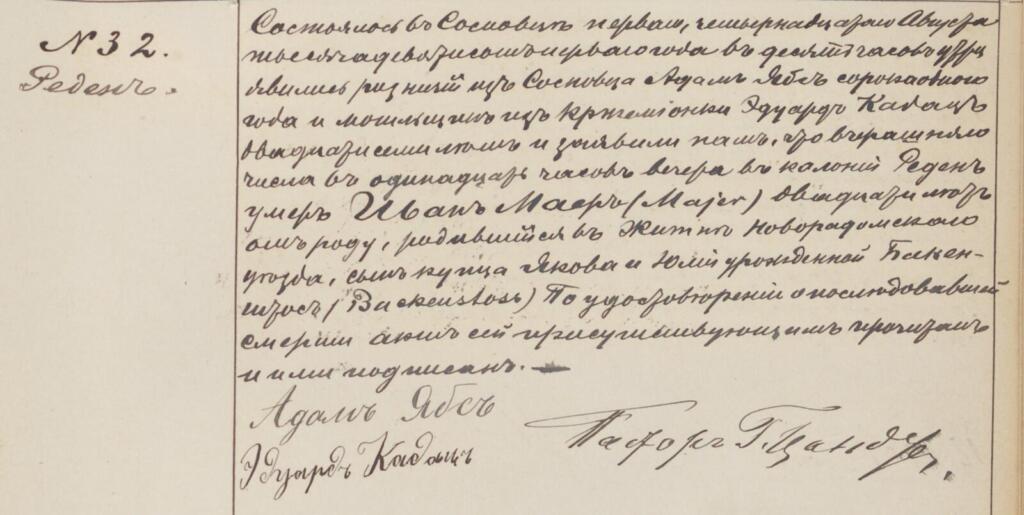 N 32.
Реденъ.
Состоялось въ Сосновицѣ первого, четырнадцатаго Августа
тысяча девятисотъ перваго года въ десять часовъ утра
явились ризничій изъ Сосновца Адамъ Ябсъ сорока одного
года и могильщикъ изъ Кржеміонки Эдуардъ Кабацъ
двадцати семи лѣтъ и заявили намъ, что вчерашняго
числа въ одинадцать часовъ вечера въ колоніи Реденъ
умеръ Иванъ Маеръ (Majer) двадцати лѣтъ
отъ роду, родившійся въ Житнѣ Новорадомскаго
уѣзда, сынъ купца Якова и Юліи урожденной Бакен-
штосъ (Backenstoss) По удостовѣреніи о послѣдовавшей
смерти актъ сей присутствующимъ прочитанъ
и ими подписанъ. —
Адамъ Ябсъ
Эдуардъ Кабацъ
Пасторъ Г. Цандеръ.